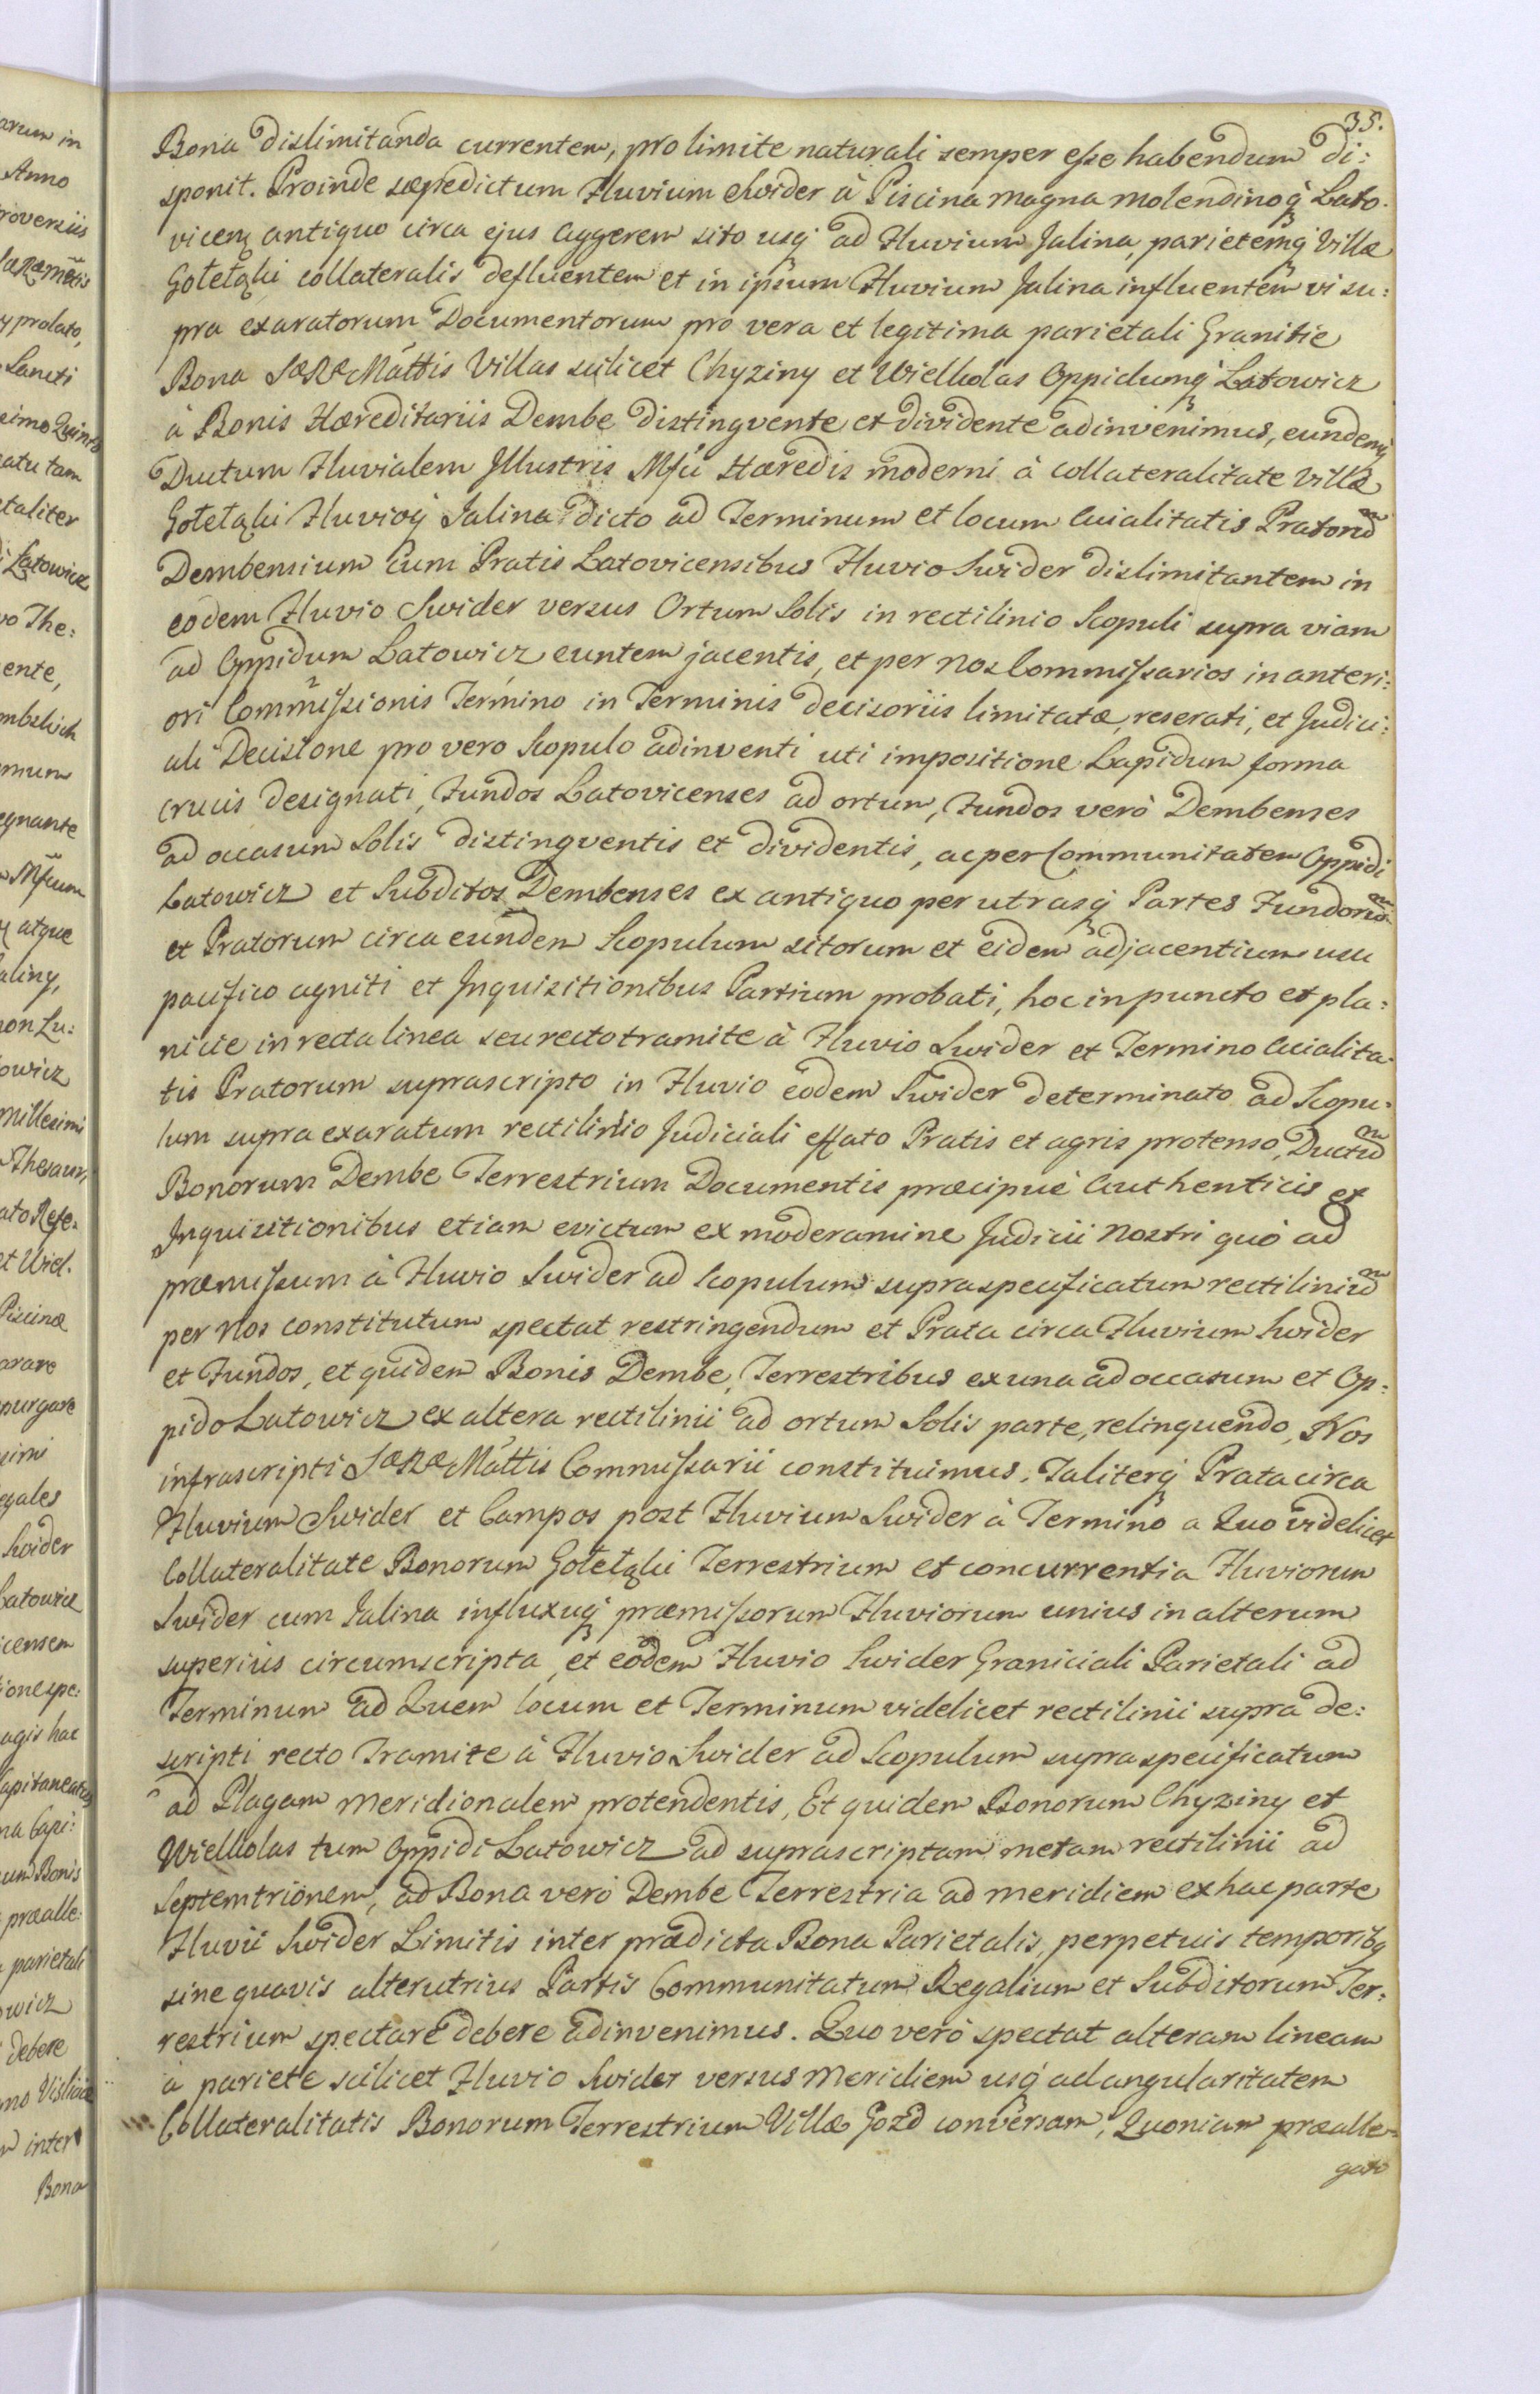 35.
Bona dislimitanda currentem, pro limite naturali semper esse habendum di:
sponit. Proinde sæpedictum Fluvium Swider à Piscina magna molendinoq́ Lato.
vicen antiquo circa ejus aggerem sito usq́ ad Fluvium Jalina, parietemq́ Villæ
Gołetąki collateralis defluentem et in ipsum Fluvium Jalina influentem vi su:
pra exaratorum Documentorum pro vera et legitima parietali Granitie
Bona SæRæMáttis Villas scilicet Chyziny et Wielkolas Oppidumq́ Latowicz
à Bonis Hæreditariis Dembe distingvente et dividente adinvenimus, eundemq́
Ductum Fluvialem Jllustris Mfci Hæredis moderni à collateralitate Villæ
Gołetąki Fluvioq́ Jalina dicto ad Terminum et locum Acialitatis Pratorum
Dembensium cum Pratis Latovicensibus Fluvio Swider dislimitantem in
eodem Fluvio Swider versus Ortum Solis in rectilinio Scopuli supra viam
ad Oppidum Latowicz euntem jacentis, et per nos Commissarios in anteri:
ori Commissionis Termino in Terminis decisoriis limitatæ, reserati, et Judici:
ali Decisione pro vero Scopulo adinventi uti impositione Lapidum forma
crucis designati, Fundos Latovicenses ad ortum, Fundos verò Dembenses
ad occasum Solis distingventis et dividentis, ac per Communitatem Oppidi
Latowicz et Subditos Dembenses ex antiquo per utrasq́ Partes Fundorum
et Pratorum circa eundem Scopulum sitorum et eidem adjacentium usu
pacifico agniti et Jnquisitionibus Partium probati, hoc in puncto et pla:
nicie in recta linea seu recto tramite à Fluvio Swider et Termino Acialita.
tis Pratorum suprascripto in Fluvio eodem Swider determinato ad Scopu.
lum supra exaratum rectilinio Judiciali effato Pratis et agris protenso, Ductum
Bonorum Dembe Terrestrium Documentis præcipuè Authenticis et
Jnquisitionibus etiam evictum ex moderamine Judicii nostri quò ad
præmissum à Fluvio Swider ad Scopulum supraspecificatum rectilinium
per nos constitutum spectat restringendum et Prata circa Fluvium Swider
et Fundos, et quidem Bonis Dembe, Terrestribus ex una ad occasum et Op:
pido Latowicz ex altera rectilinii ad ortum Solis parte, relinquendo, Nos
infrascripti SæRæMáttis Commissarii constituimus. Taliterq́ Prata circa
Fluvium Swider et Campos post Fluvium Swider à Termino a Quo videlicet
Collateralitate Bonorum Gołetąki Terrestrium et concurrentia Fluviorum
Swider cum Jalina influxuq́ præmissorum Fluviorum unius in alterum
superius circumscripta, et eodem Fluvio Swider Graniciali Parietali ad
Terminum ad Quem locum et Terminum videlicet rectilinii supra de:
scripti recto Tramite à Fluvio Swider ad Scopulum supraspecificatum
ad Plagam meridionalem protendentis, Et quidem Bonorum Chyziny et
Wielkolas tum Oppidi Latowicz ad suprascriptam metam rectilinii ad
Septemtrionem, ad Bona verò Dembe Terrestria ad meridiem ex hac parte
Fluvii Swider Limitis inter prædicta Bona Parietalis, perpetuis temporibq
sine quavis alterutrius Partis Communitatum Regalium et Subditorum Ter:
restrium spectare debere adinvenimus. Quo verò spectat alteram lineam
à pariete scilicet Fluvio Swider versus Meridiem usq́ ad angularitatem
Collateralitatis Bonorum Terrestrium Villæ Gozd conversam, Quoniam prælle
gato
arum in
Anno
roversiis
y prolato,
Sancti
simo Quinto
catu tam
taliter
Latowicz
vo The:
ente,
mum
egnante
Mfcum
atque
aliny,
on Lu:
owicz
Millesimi
Thesaur,
ato Refe.
et Wiel.
Piscinæ
arare
purgare
simi
egales
Swider
Latowicz
icensem
ione spe:
agis hac
apitaneatus
na Capi:
um Bonis
prælle:
parietali
owicz
debere
inter
Bona